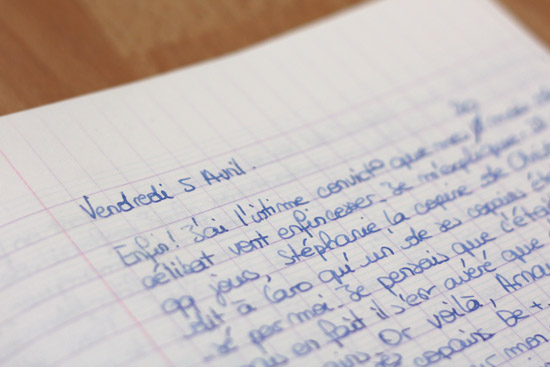 Vendredi 5 Avril.
Enfin! J'ai l'intime convictio que mes mon
célibat vont enfin cesser. Je m'explique. Il
99 jours, Stéphanie, la copine de
dit à Caro qu'un de ses copains
par moi. Je pensais que c'était
en fait il s'est avéré que
Or voilà, Arnau
copains be
mon